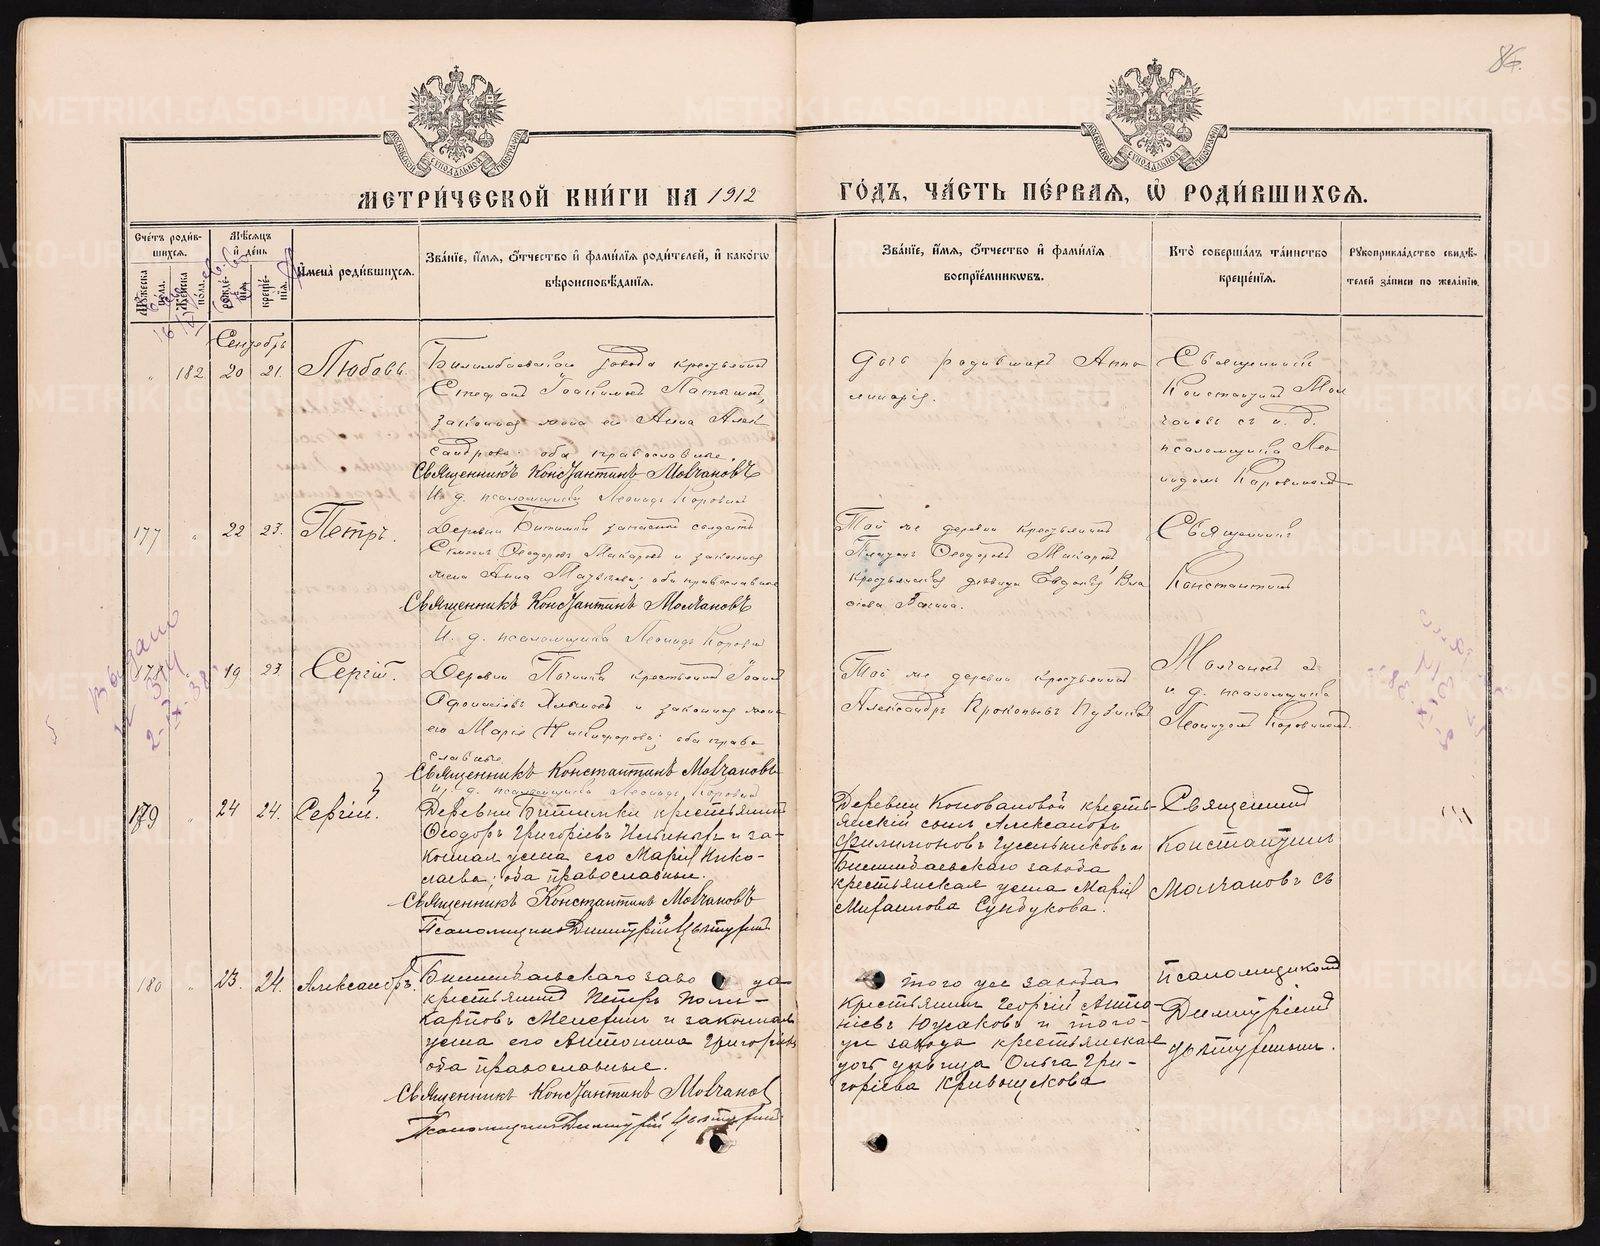 86.
МЕТРИ́ЧЕСКОЙ КНИ́ГИ НА 1912
ГО́ДЪ, ЧА́СТЬ ПЕ́РВАЯ, Ѡ҆ РОДИ́ВШИХСЯ.
Сче́тъ роди́в-
шихся.
Мѣ́сяцъ
и҆ де́нь
Мꙋ́жеска
по́ла.
Же́нска
по́ла.
рожде́-
нїя.
креще́-
нїя.
И҆мена̀ роди́вшихся.
Зва́нїе, и҆́мя, ѻ҆́тчество и҆ фами́лїя роди́телей, и҆ како́гѡ
вѣроисповѣ́данїя.
Зва́нїе, и҆́мя, ѻ҆́тчество и҆ фами́лїя
воспрїе́мниковъ.
Кто̀ соверша́лъ та́инство
креще́нїя.
Рꙋкоприкла́дство свидѣ́-
телей за́писи по жела́нїю.
Сентябрь
" 182. 20 21. Любовь.
Билимбаевскаго завода крестьянинъ
Стефанъ Іоакимовъ Латышевъ,
законная жена его Анна Алек
сандрова; оба православные.
Священникъ Константинъ Молчановъ
И. д. псаломщика Леонидъ Коровинъ
Дочь родившихъ Апол
линарія.
Священникъ
Константинъ Мол
чановъ съ и. д.
псаломщика Лео
нидомъ Коровинымъ
177 " 22 23. Петръ.
Деревни Битимки запасный солдатъ
Симеонъ Ѳеодоровъ Макаровъ и законная
жена Анна; оба православные
Священникъ Константинъ Молчановъ
И. д. псаломщика Леонидъ Коровинъ
Той же деревни крестьянинъ
Платонъ Ѳеодоровъ Макаровъ
крестьянская дѣвица Евдокія Вла
сіева
Священникъ
Константинъ
178 " 19 23 Сергій.
Деревни Починка крестьянинъ Іоаннъ
и законная жена
его Марія Никифорова; оба право
славные
Священникъ Константинъ Молчановъ
И. д. псаломщика Леонидъ Коровинъ
Той же деревни крестьянинъ
Александръ Прокопьевъ
Молчановъ съ
и. д. псаломщика
Леонидомъ Коровинымъ.
выдано
179 " 24 24. Сергій.
Деревни Битимки крестьянинъ
Ѳеодоръ Григорьевъ Ильиныхъ и за-
конная жена его Марія Нико-
лаева; оба православные.
Священникъ Константинъ Молчановъ
Псаломщикъ Димитрій
Деревни Коноваловой кресть-
янскій сынъ Александръ
Филимоновъ Гусельниковъ и
Билимбаевскаго завода
крестьянская жена Марія
Михаилова Сундукова.
Священникъ
Константинъ
Молчановъ съ
180 " 23. 24. Александръ.
Билимбаевскаго заво да
крестьянинъ Петръ Поли-
карповъ и законная
жена его Антонина Григорьева
оба православные.
Священникъ Константинъ Молчановъ
Псаломщикъ Димитрій
того же завода
крестьянинъ Георгій Анто-
ніевъ Южаковъ и того-
же завода крестьянская
дочь дѣвица Ольга Гри-
горіева Кривощекова
псаломщикомъ
Димитріемъ